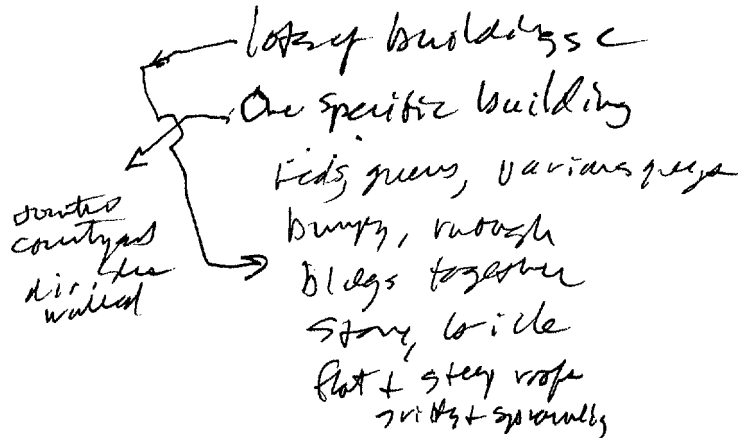 lots of buildings
One specific building
reds, greens, various greys
bumpy, rough
bldgs together
stone, brick
flat + steep roofs
+ sprawling
courtyard
walled